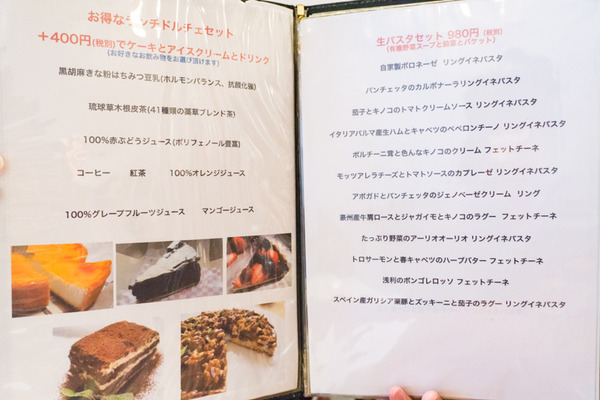 お得なランチドルチェセット
＋400円(税別)でケーキとアイスクリームとドリンク
(お好きなお飲み物をお選び頂けます)
黒胡麻きな粉はちみつ豆乳(ホルモンバランス、抗酸化強)
琉球草木根皮茶(41種類の薬草ブレンド茶)
100%赤ぶどうジュース(ポリフェノール豊富)
コーヒー 紅茶 100%オレンジジュース
100%グレープフルーツジュース マンゴージュース
生パスタセット 980円 (税別)
(有機野菜スープと前菜とバケット)
自家製ボロネーゼ リングイネパスタ
パンチェッタのカルボナーラリングイネパスタ
茄子とキノコのトマトクリームソース リングイネパスタ
イタリアパルマ産生ハムとキャベツのペペロンチーノ リングイネパスタ
ポルチーニ茸と色んなキノコのクリーム フェットチーネ
モッツアレラチーズとトマトソースのカプレーゼ リングイネパスタ
アボガドとパンチェッタのジェノベーゼクリーム リング
豪州産牛肩ロースとジャガイモとキノコのラグー フェットチーネ
たっぷり野菜のアーリオオーリオ リングイネパスタ
トロサーモンと春キャベツのハーブバター フェットチーネ
浅利のボンゴレロッソ フェットチーネ
スペイン産ガリシア栗豚とズッキーニと茄子のラグー リングイネパスタ